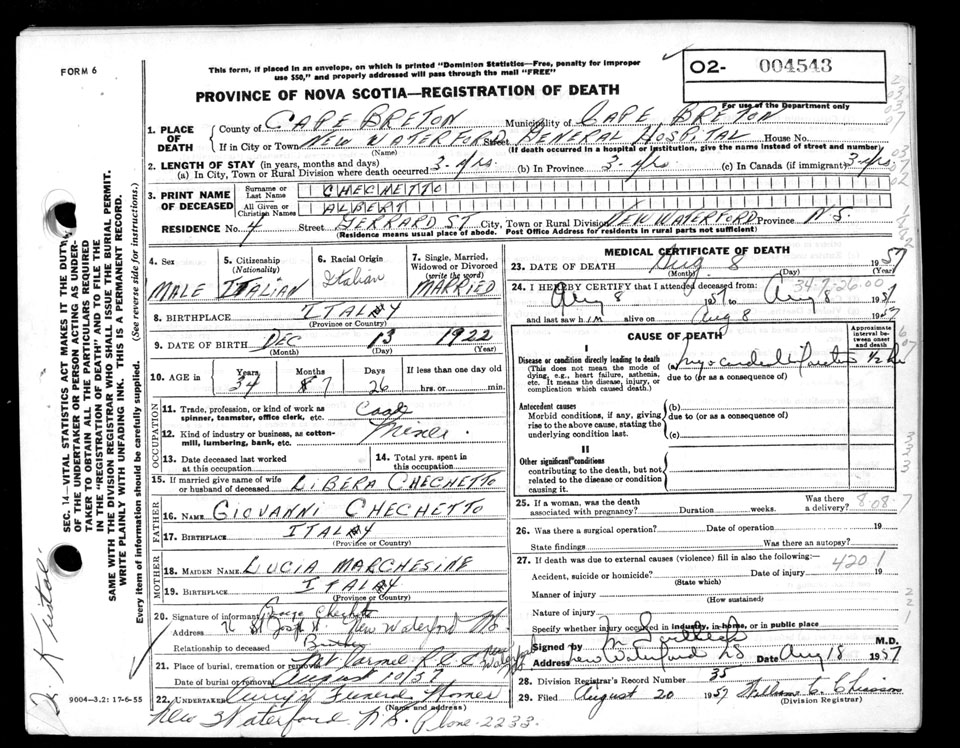 FORM 6
This form, if placed in an envelope, on which is printed "Dominion Statistics—Free, penalty for improper
use $50," and properly addressed will pass through the mail "FREE"
O2- 004543
For use of the Department only
PROVINCE OF NOVA SCOTIA—REGISTRATION OF DEATH
1. PLACE OF DEATH
County of CAPE BRETON Municipality of CAPE BRETON
If in City or Town NEW WATERFORD Street GENERAL HOSPITAL House No.
(Name) (If death occurred in a hospital or institution, give the name instead of street and number)
2. LENGTH OF STAY (in years, months and days)
(a) In City, Town or Rural Division where death occurred 3. yrs. (b) In Province 3. yrs (c) In Canada (if immigrant) 3 yrs
3. PRINT NAME OF DECEASED
Surname or Last Name CHECHETTO
All Given or Christian Names ALBERT
RESIDENCE No. 4 Street GERRARD ST City, Town or Rural Division NEW WATERFORD Province N.S.
(Residence means usual place of abode. Post Office Address for residents in rural parts not sufficient)
4. Sex
MALE
5. Citizenship (Nationality)
ITALIAN
6. Racial Origin
Italian
7. Single, Married, Widowed or Divorced (write the word)
MARRIED
8. BIRTHPLACE ITALY
(Province or Country)
9. DATE OF BIRTH DEC 13 1922
(Month) (Day) (Year)
10. AGE in Years Months Days If less than one day old
34 7 26 hrs. or min.
OCCUPATION
11. Trade, profession, or kind of work as spinner, teamster, office clerk, etc. Coal
12. Kind of industry or business, as cotton-mill, lumbering, bank, etc. Miner.
13. Date deceased last worked at this occupation
14. Total yrs. spent in this occupation
15. If married give name of wife or husband of deceased LIBERA CHECHETTO
FATHER
16. NAME GIOVANNI CHECHETTO
17. BIRTHPLACE ITALY
(Province or Country)
MOTHER
18. MAIDEN NAME LUCIA MARCHESINE
19. BIRTHPLACE ITALY
(Province or Country)
20. Signature of informant Chechetto
Address St New Waterford N.S.
Relationship to deceased Brother
21. Place of burial, cremation or removal Mt Carmel R C C New Waterford NS
Date of burial or removal August 10/57
22. UNDERTAKER Curry's Funeral Home
(Name and address)
New Waterford N.S. Phone-2233.
MEDICAL CERTIFICATE OF DEATH
23. DATE OF DEATH Aug. 8 1957
(Month) (Day) (Year)
24. I HEREBY CERTIFY that I attended deceased from:
Aug 8 1957 to Aug 8 1957
34-7-26-00
and last saw him alive on Aug 8 1957
CAUSE OF DEATH
Approximate interval between onset and death
I
Disease or condition directly leading to death
(This does not mean the mode of dying, e.g., heart failure, asthenia, etc. It means the disease, injury, or complication which caused death.)
(a) 1/2 hr
due to (or as a consequence of)
Antecedent causes
Morbid conditions, if any, giving rise to the above cause, stating the underlying condition last.
(b)
due to (or as a consequence of)
(c)
II
Other significant conditions
contributing to the death, but not related to the disease or condition causing it.
25. If a woman, was the death associated with pregnancy? Duration weeks. Was there a delivery?
8-08-7
26. Was there a surgical operation? Date of operation 19
State findings Was there an autopsy?
27. If death was due to external causes (violence) fill in also the following:
4201
Accident, suicide or homicide? Date of injury 19
(State which)
Manner of injury
(How sustained)
Nature of injury
Specify whether injury occurred in industry, in home, or in public place
Signed by M.D.
Address New Waterford NS Date Aug 18 1957
28. Division Registrar's Record Number 35
29. Filed August 20 1957 William C. Chiasson
(Division Registrar)
SEC. 14—VITAL STATISTICS ACT MAKES IT THE DUTY
OF THE UNDERTAKER OR PERSON ACTING AS UNDER-
TAKER TO OBTAIN ALL THE PARTICULARS REQUIRED
IN THE "REGISTRATION OF DEATH" AND TO FILE THE
SAME WITH THE DIVISION REGISTRAR WHO SHALL ISSUE THE BURIAL PERMIT.
WRITE PLAINLY WITH UNFADING INK. THIS IS A PERMANENT RECORD.
Every item of information should be carefully supplied. (See reverse side for instructions.)
9004-3.2: 17-6-55